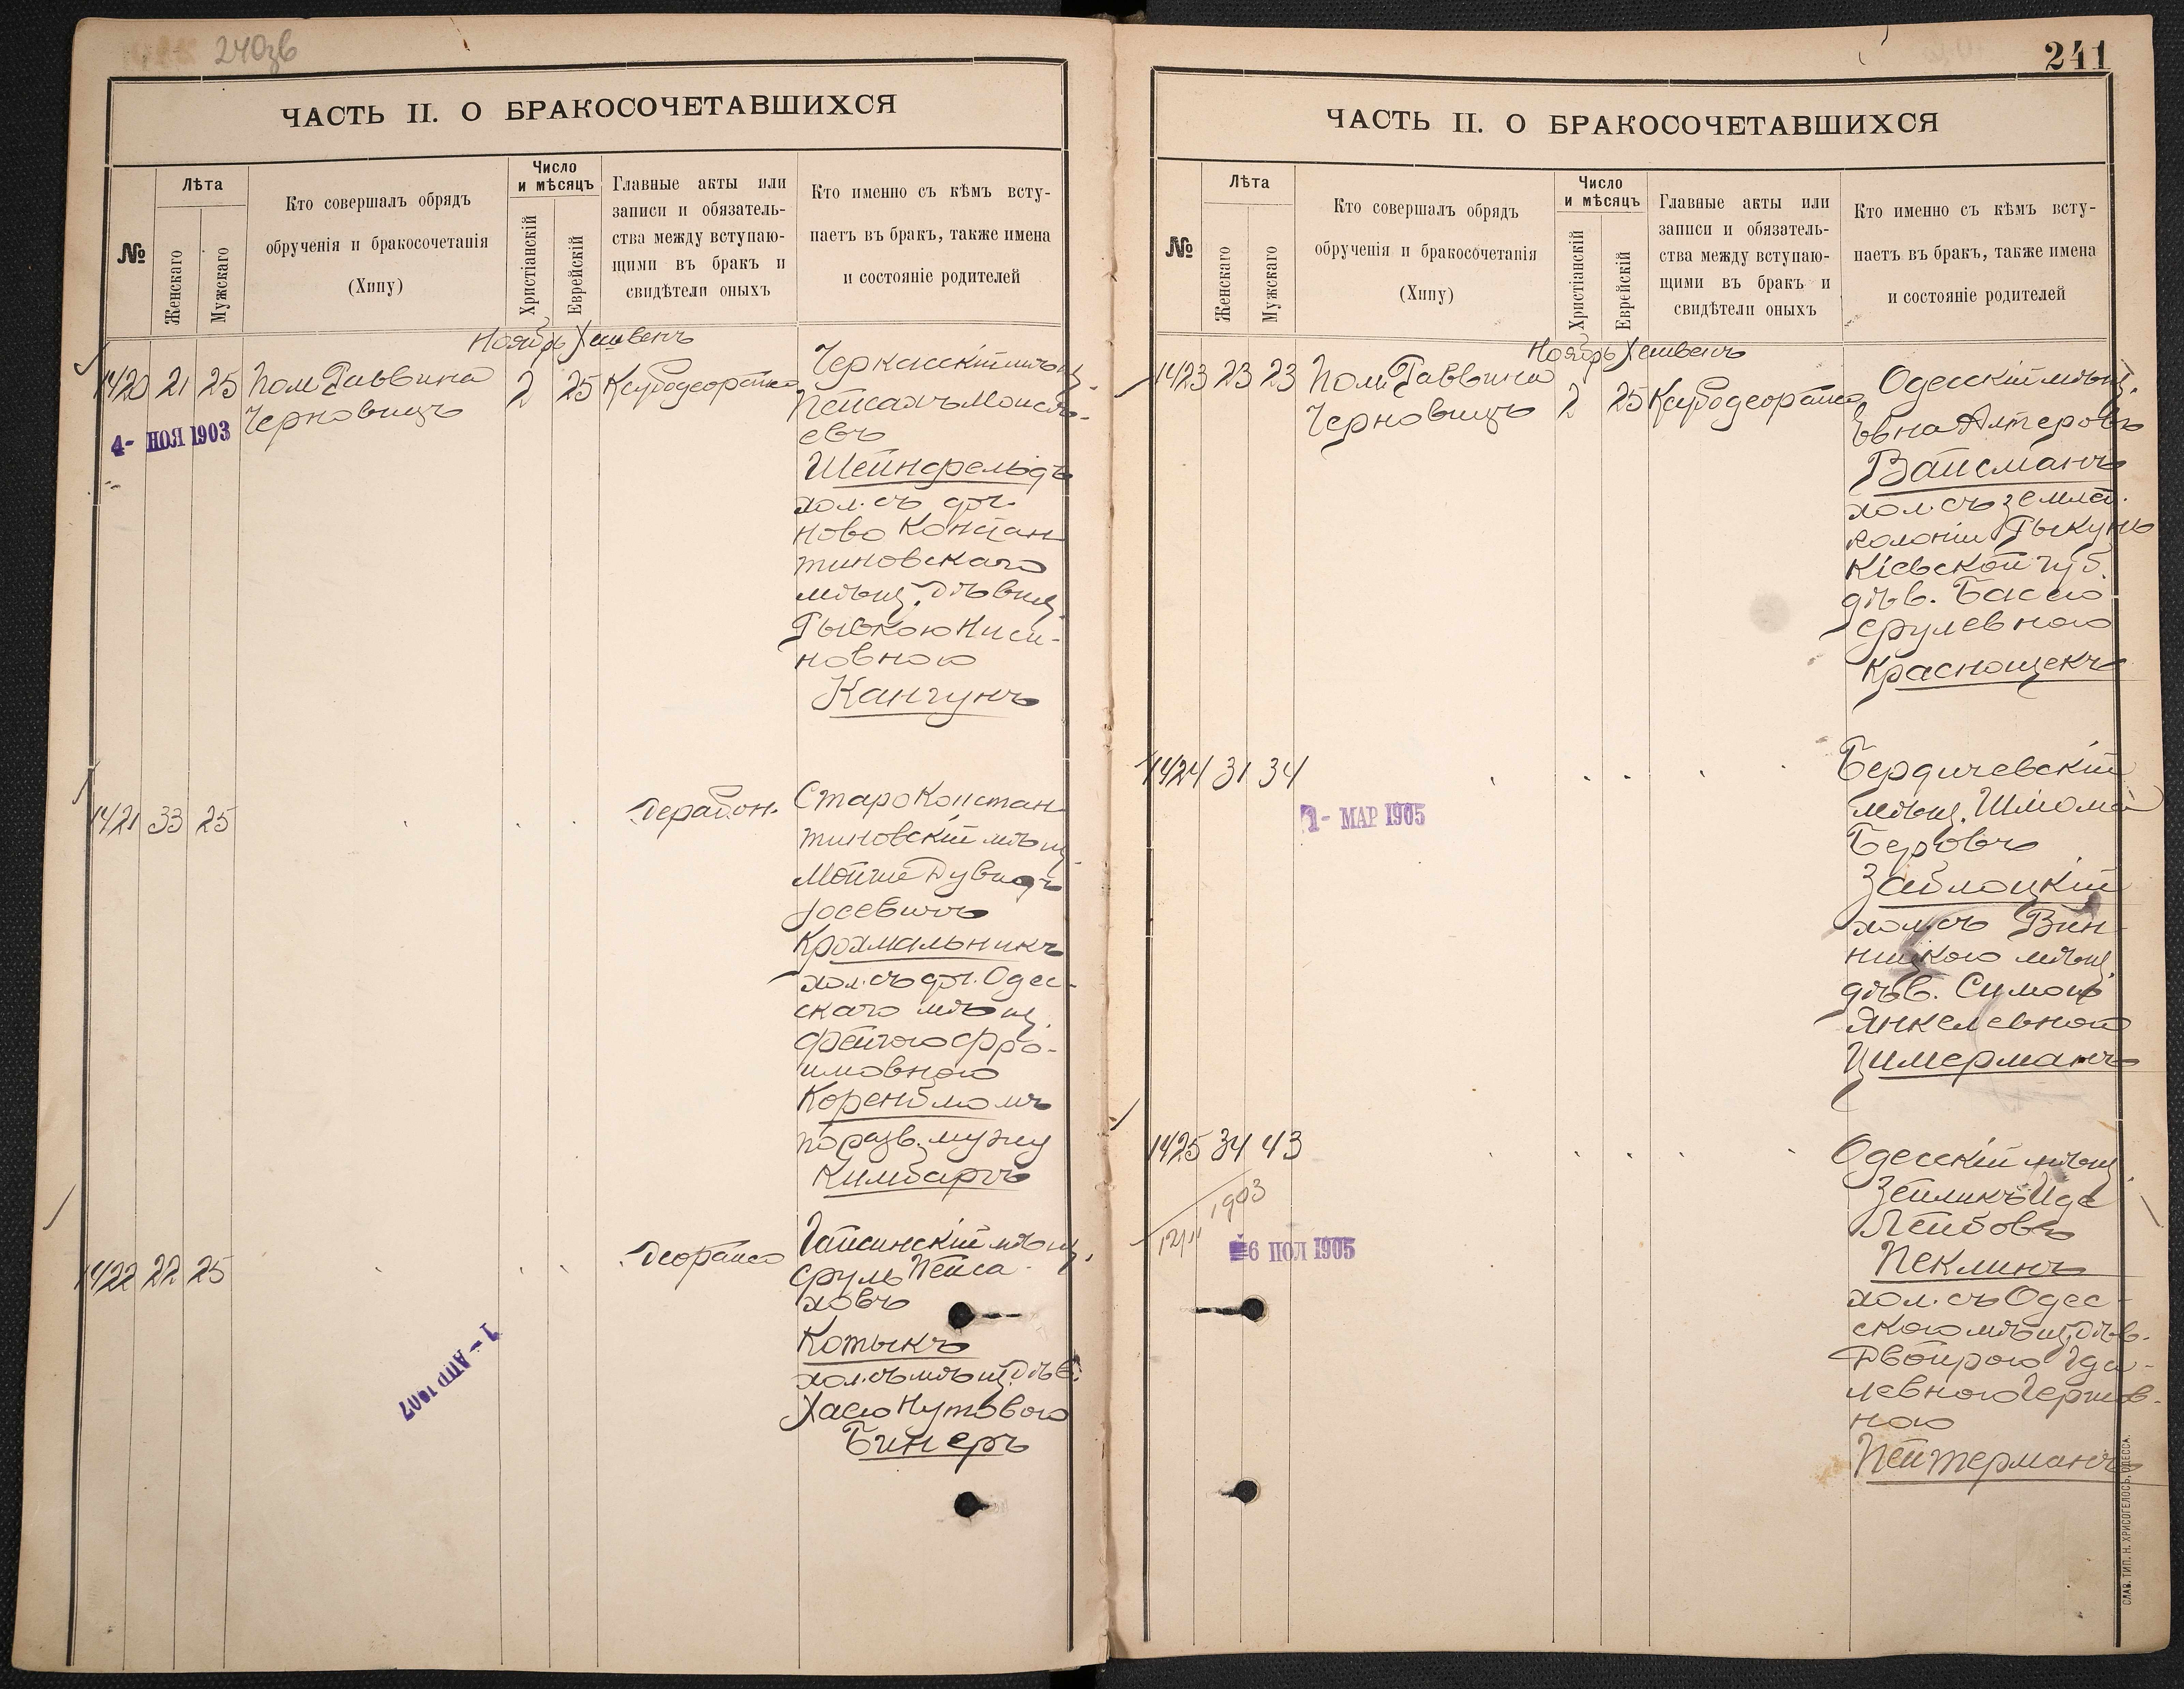 240зв
ЧАСТЬ II. О БРАКОСОЧЕТАВШИХСЯ
№
Лѣта
Женскаго
Мужскаго
Кто совершалъ обрядъ
обрученія и бракосочетанія
(Хипу)
Число
и мѣсяцъ
Христіанскій
Еврейскій
Главные акты или
записи и обязатель-
ства между вступаю-
щими въ бракъ и
свидѣтели оныхъ
Кто именно съ кѣмъ всту-
паетъ въ бракъ, также имена
и состояніе родителей
Ноябрь Хешвенъ
1420 21 25 Пом Раввина 2 25
Черновицъ
4- НОЯ 1903
Черкасскій мѣщ.
Пейсахъ Моисе-
евъ
Шейнфельдъ
хол. съ доч.
Ново Констан
тиновскаго
мѣщ. дѣвиц.
Рывкою Ниси-
новною
Кангунъ
1421 33 25
Старо Констан
тиновскій мѣщ.
Мойше Дувидъ
Іосевичъ
Крохмальникъ
хол. съ доч. Одес-
скаго мѣщ.
Фейгою Фро-
имовною
Коренблюмъ
по разв. мужу
Кимбаръ
1422 22 25
Гайсинскій мѣщ.
Сруль Пейса-
ховъ
Котыкъ
хол. съ мѣщ. дѣв.
Хасею Нутовою
Бинеръ
1- АПР 1907
241
ЧАСТЬ II. О БРАКОСОЧЕТАВШИХСЯ
№
Лѣта
Женскаго
Мужскаго
Кто совершалъ обрядъ
обрученія и бракосочетанія
(Хипу)
Число
и мѣсяцъ
Христіанскій
Еврейскій
Главные акты или
записи и обязатель-
ства между вступаю-
щими въ бракъ и
свидѣтели оныхъ
Кто именно съ кѣмъ всту-
паетъ въ бракъ, также имена
и состояніе родителей
Ноябрь Хешвенъ
1423 23 23 Пом. Раввина 2 25
Черновицъ
Одесскій мѣщ.
Алтеровъ
Вайсманъ
хол. съ землед.
колоніи
Кіевской губ.
дѣв. Басею
Срулевною
Краснощекъ
1424 31 34
1- МАР 1905
Бердичевскій
мѣщ. Шлюма
Беровъ
Заблоцкій
хол. съ Вин-
ницкою мѣщ.
дѣв. Симою
Янкелевною
Цимерманъ
1425 34 43
1903
6 1905
Одесскій мѣщ.
Зейликъ Иде
Лейбовъ
Пеклинъ
хол. съ Одес-
скою мѣщ. дѣв.
Двойрою Гда-
левною Герш-
ною
Пейтерманъ
СЛАВ. ТИП. Н. ХРИСОГЕЛОСЪ, ОДЕССА.